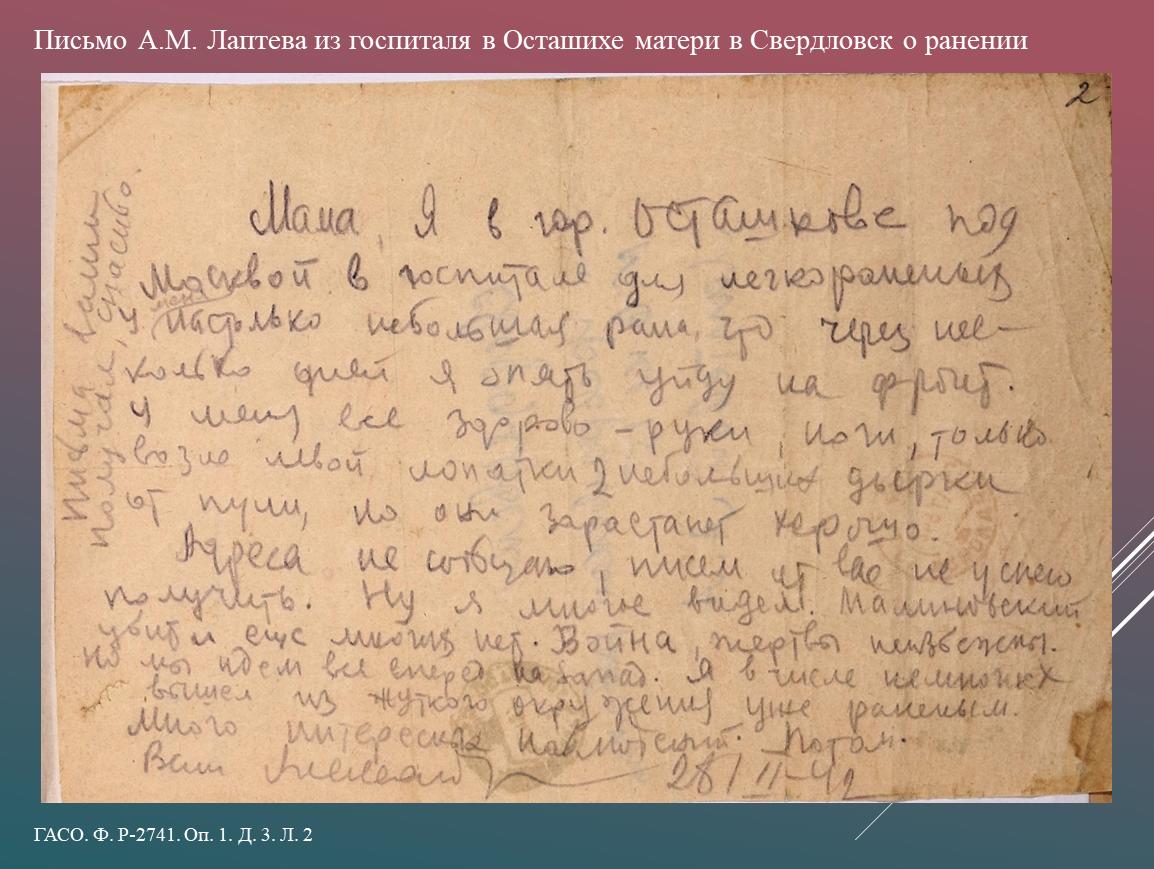 Письмо А.М. Лаптева из госпиталя в Осташихе матери в Свердловск о ранении
2
Мама, Я в гор. ОСТАШкове под
Москвой в госпитале для легкораненых
У меня настолько небольшая рана, что через нес-
колько дней я опять уйду на фронт.
У меня все здорово – руки, ноги, только
возле левой лопатки 2 небольших дырки
от пули, но они зарастают хорошо.
Адреса не сообщаю, писем от вас не успею
получить. Ну я многое видел. Малиновский
убит и еще многих нет. Война, жертвы неизбежны.
Но мы идем все вперед на запад. Я в числе немногих
вышел из жуткого окружения уже раненым.
Много интересных Потом.
Ваш Александр 28/II–42
Письма ваши
получал, спасибо.
ГАСО. Ф. Р-2741. Оп. 1. Д. 3. Л. 2